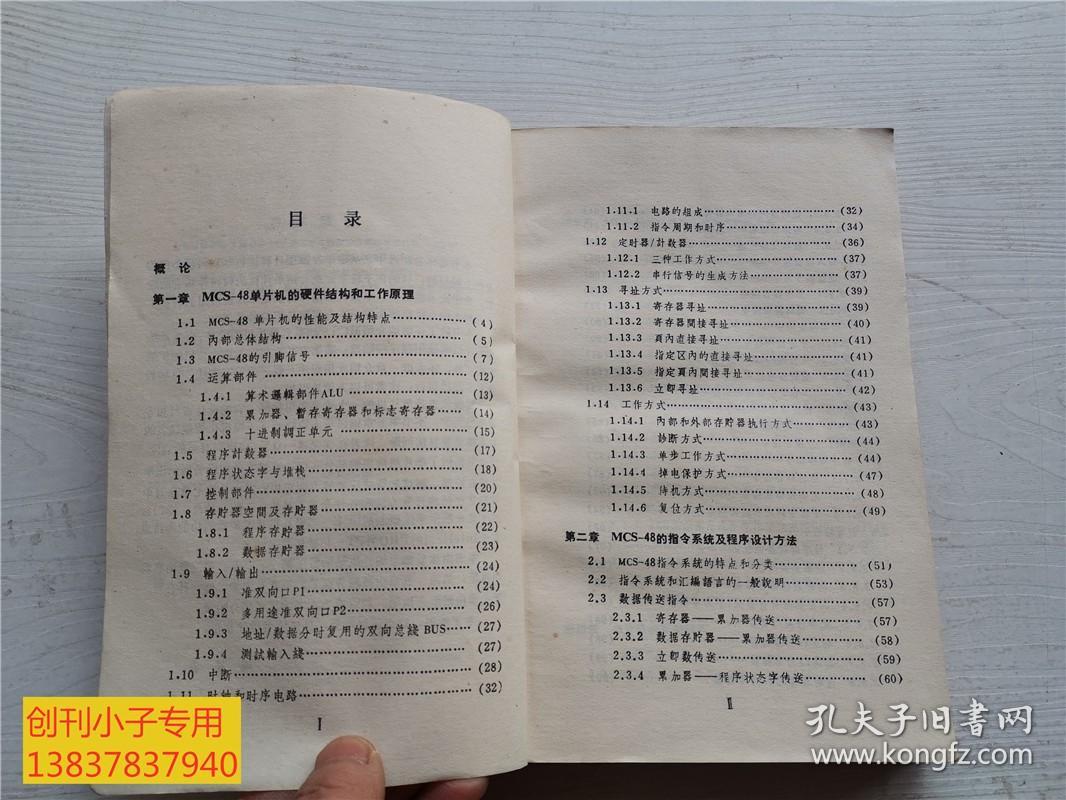 目 录
概 论
第一章 MCS-48单片机的硬件结构和工作原理
1.1 MCS-48 单片机的性能及结构特点………………(4)
1.2 內部总体结构………………(5)
1.3 MCS-48的引脚信号………………(7)
1.4 运算部件………………(12)
1.4.1 算术邏輯部件ALU………………(13)
1.4.2 累加器、暫存寄存器和标志寄存器………(14)
1.4.3 十进制調正单元………………(15)
1.5 程序計数器………………(17)
1.6 程序状态字与堆栈………………(18)
1.7 控制部件………………(20)
1.8 存貯器空間及存貯器………………(21)
1.8.1 程序存貯器………………(22)
1.8.2 数据存貯器………………(23)
1.9 輸入/輸出………………(24)
1.9.1 准双向口P1………………(24)
1.9.2 多用途准双向口P2………………(26)
1.9.3 地址/数据分时复用的双向总綫 BUS……(27)
1.9.4 測試輸入綫………………(27)
1.10 中断………………(28)
1.11 时钟和时序电路………………(32)
I
1.11.1 电路的组成………………(32)
1.11.2 指令周期和时序………………(34)
1.12 定时器/計数器………………(36)
1.12.1 三种工作方式………………(37)
1.12.2 串行信号的生成方法………………(37)
1.13 寻址方式………………(39)
1.13.1 寄存器寻址………………(39)
1.13.2 寄存器間接寻址………………(40)
1.13.3 頁內直接寻址………………(41)
1.13.4 指定区內的直接寻址………………(41)
1.13.5 指定頁內間接寻址………………(41)
1.13.6 立即寻址………………(42)
1.14 工作方式………………(43)
1.14.1 內部和外部存貯器执行方式………………(43)
1.14.2 診断方式………………(44)
1.14.3 单步工作方式………………(44)
1.14.4 掉电保护方式………………(47)
1.14.5 待机方式………………(48)
1.14.6 复位方式………………(49)
第二章 MCS-48的指令系统及程序设计方法
2.1 MCS-48指令系统的特点和分类………………(51)
2.2 指令系统和汇編語言的一般說明………………(53)
2.3 数据传送指令………………(57)
2.3.1 寄存器——累加器传送………………(57)
2.3.2 数据存貯器——累加器传送………………(58)
2.3.3 立即数传送………………(59)
2.3.4 累加器——程序状态字传送………………(60)
II
创刊小子专用
13837837940
孔夫子旧書网
www.kongfz.com